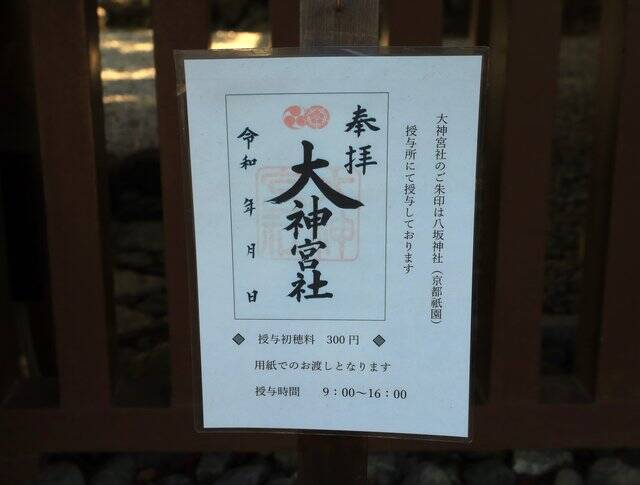 大神宮社のご朱印は八坂神社（京都祇園）
授与所にて授与しております
奉拝
大神宮社
令和　年　月　日
授与初穂料　300円
用紙でのお渡しとなります
授与時間　9：00～16：00